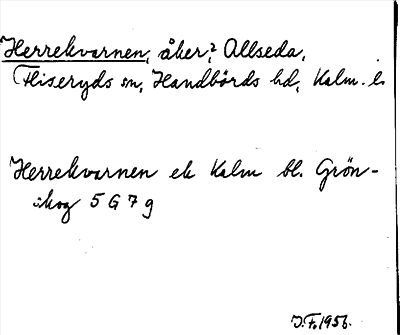 Herrekvarnen, åker? Allseda,
Fliseryds sn, Handbörds hd, Kalm. l.
Herrekvarnen ek Kalm bl. Grön-
skog 5 G 7 g
J.F. 1956.